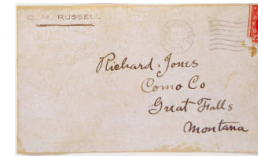 C. M. RUSSELL
Richard. Jones
Como Co
Great Falls
Montana